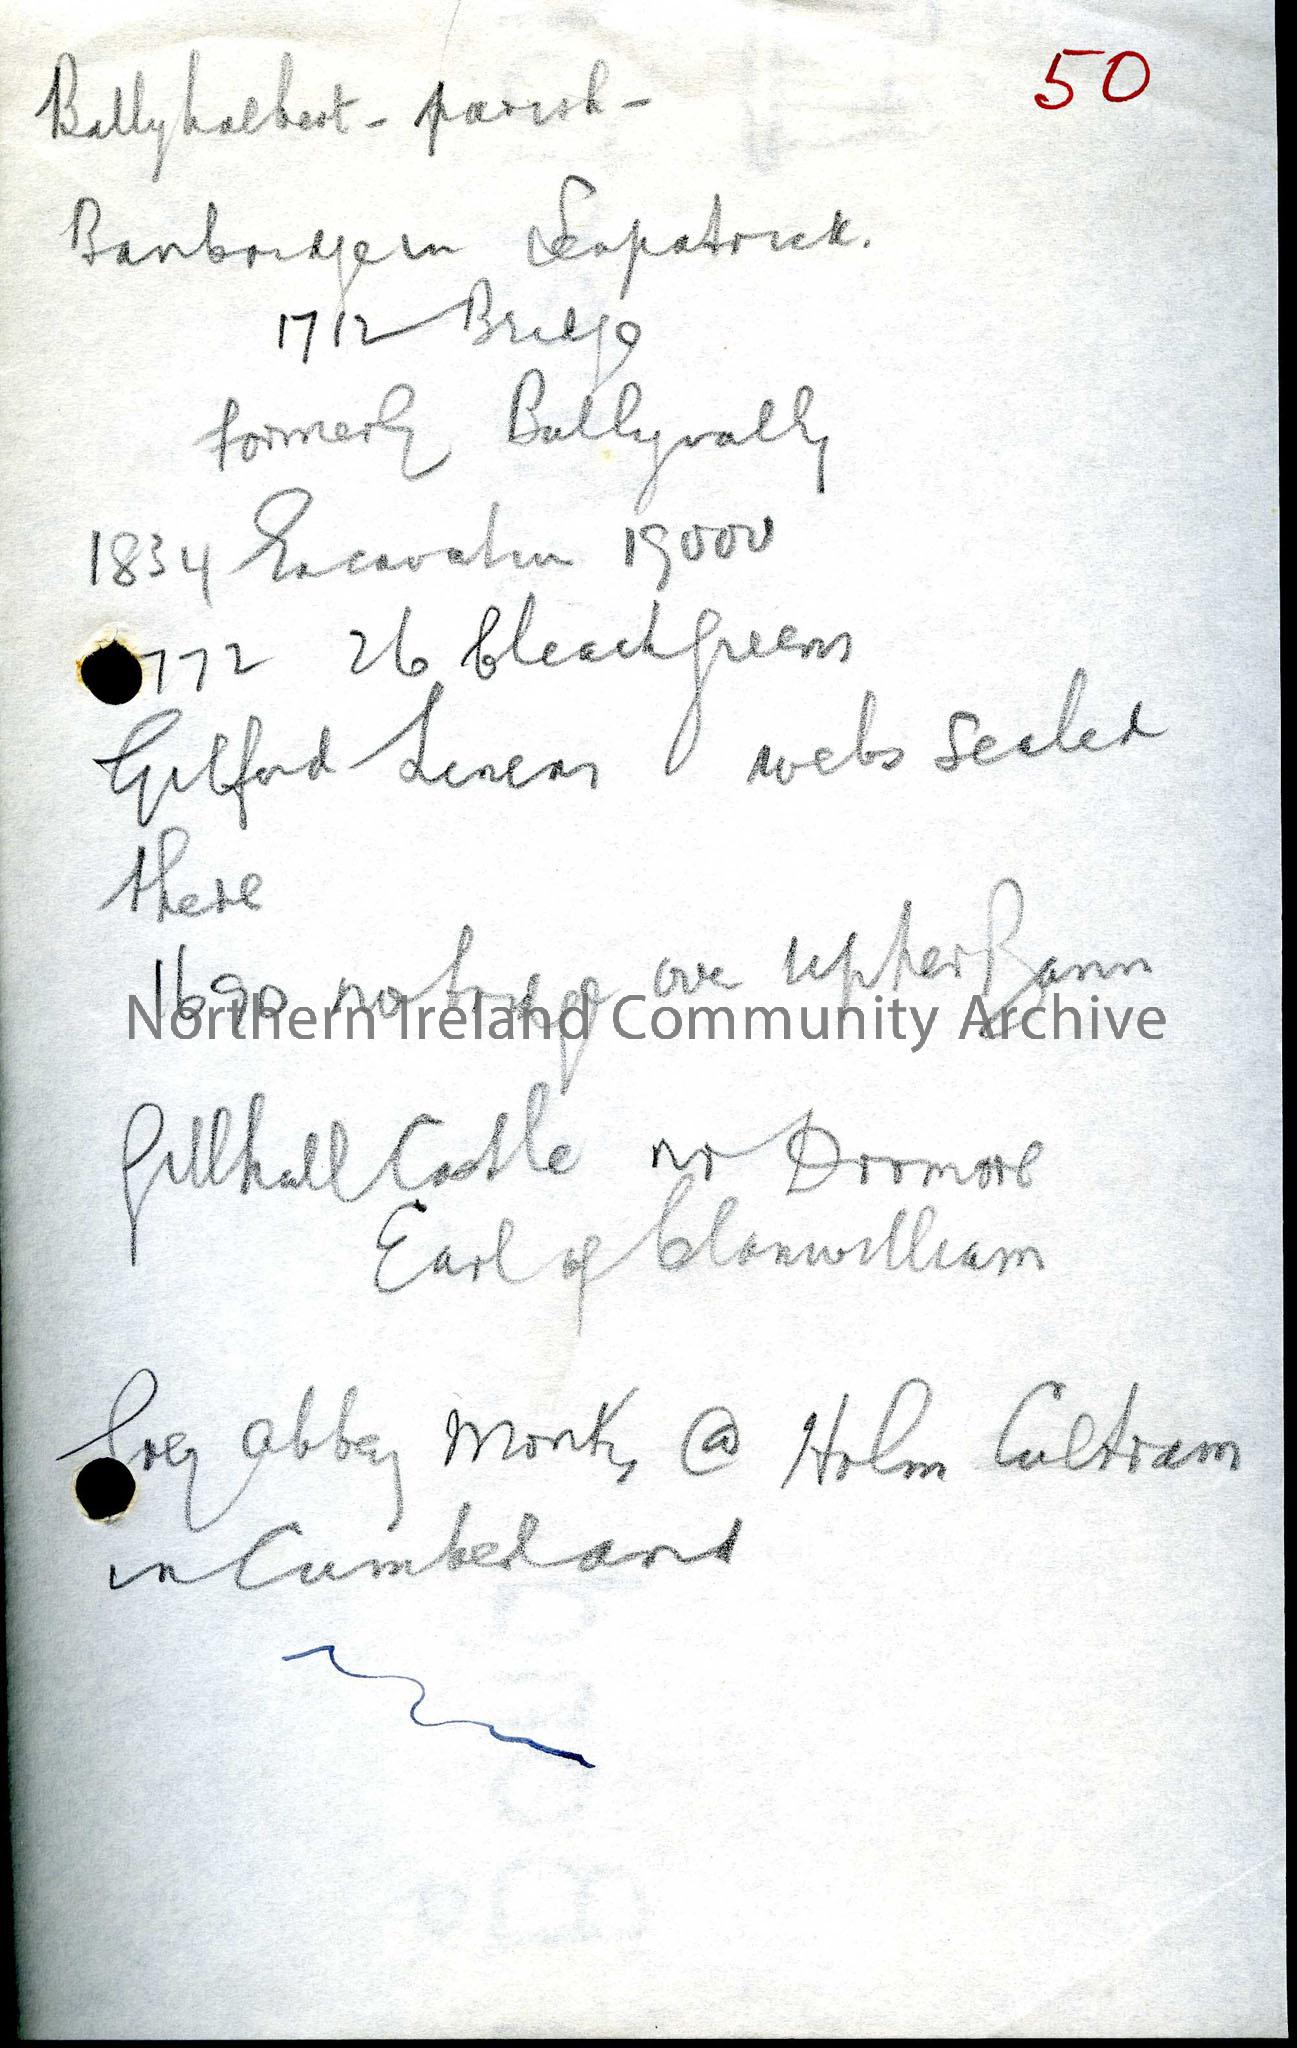 50
Ballyhalbert - parish -
Banbridge in Seapatrick.
1712 Bridge
formerly Ballyvally
1834 Excavation 19000
772 26 bleachgreens
Gilford Linens webs sealed
there
1690 no bridge over upper Bann
Northern Ireland Community Archive
Gillhall Castle nr Dromore
Earl of Clanwilliam
Grey abbey Monks @ Holm Cultram
in Cumberland